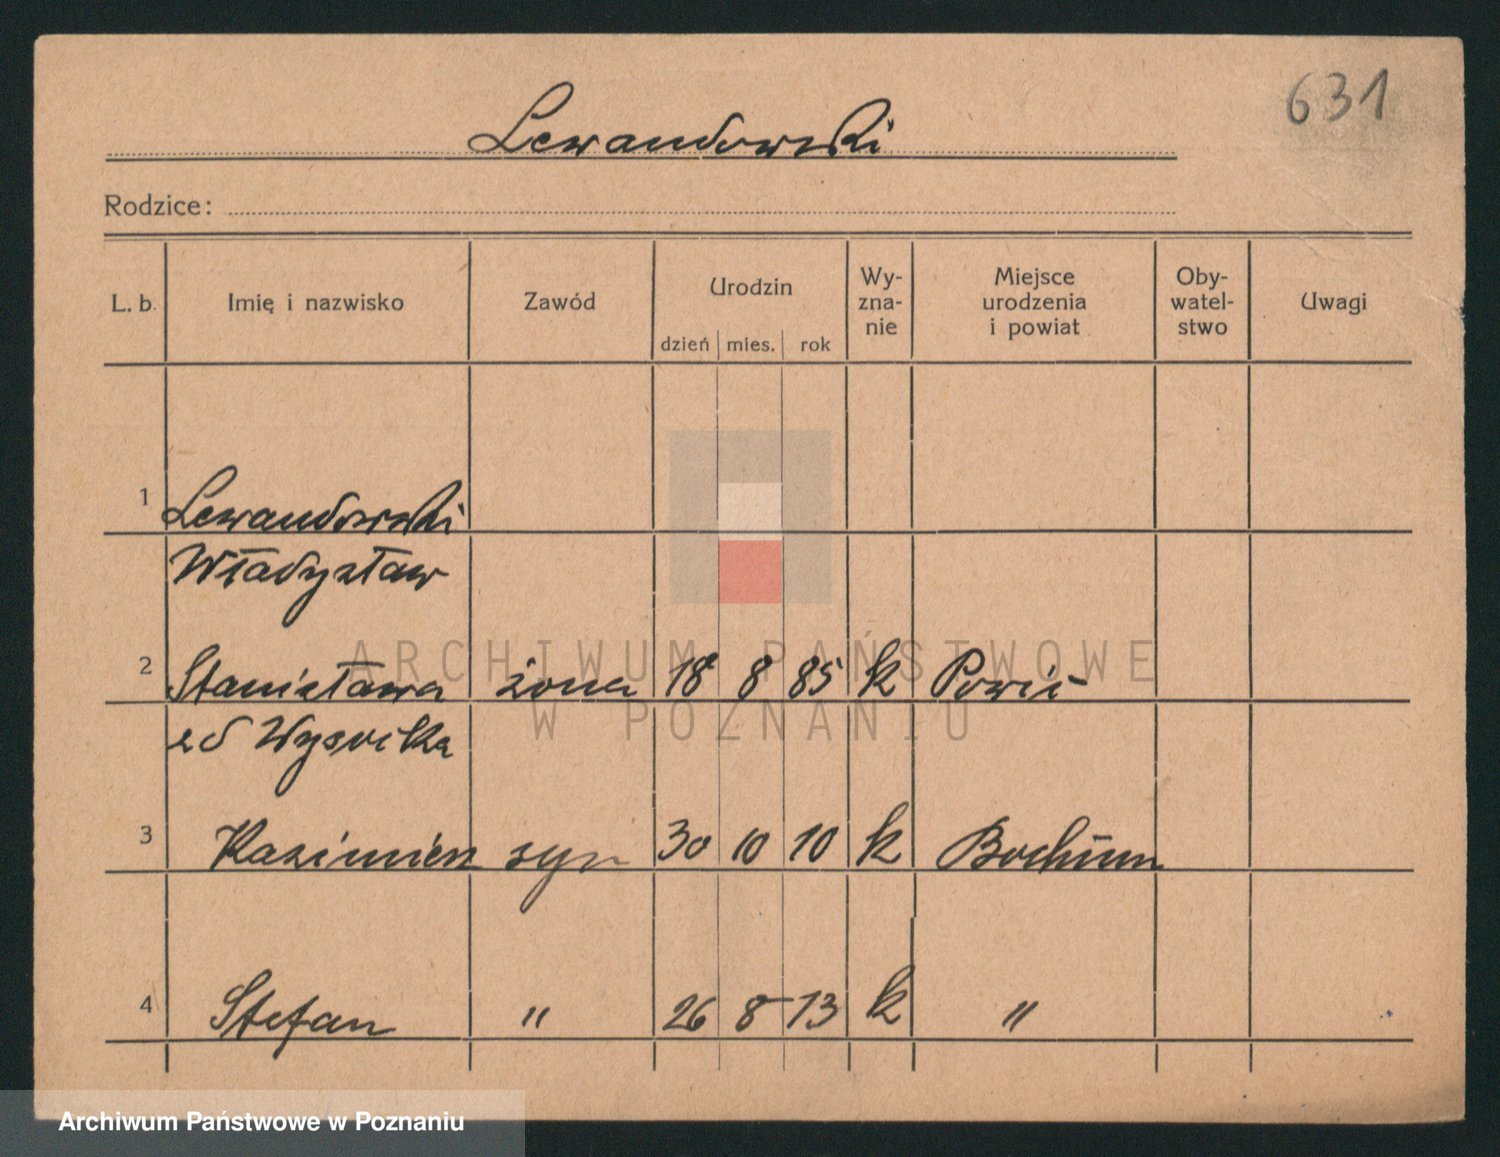 631
Lewandowski
Rodzice:
L. b. Imię i nazwisko Zawód Urodzin dzień mies. rok Wy-zna-nie Miejsce urodzenia i powiat Oby-watel-stwo Uwagi
1 Lewandowski
Władysław
2 Stanisława żona 18 8 85 k
3 Kazimierz syn 30 10 10 k Bochum
4 Stefan " 26 8 13 k "
ARCHIWUM PAŃSTWOWE
W POZNANIU
Archiwum Państwowe w Poznaniu